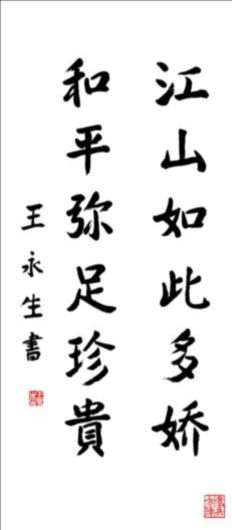 江山如此多娇
和平弥足珍貴
王永生書